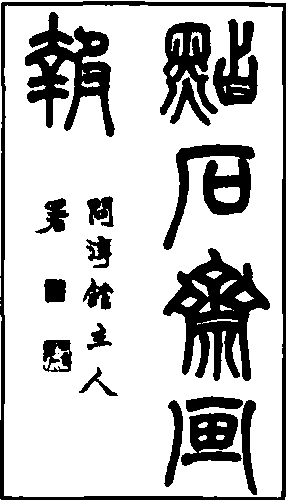 點石齋画
報
問淳館主人
署